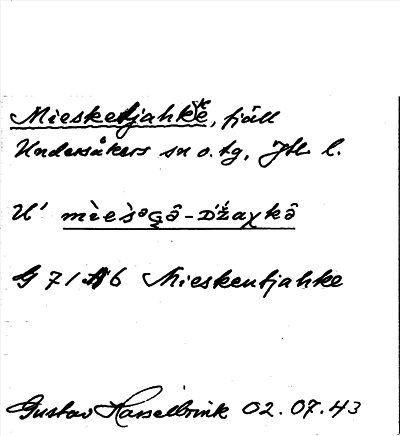 Mieskentjahkĕ, fjäll
Undersåkers sn o. tg, Jtl l.
U' mèes̀ᵊGə̂-Dʹžaχkə̂
G 71 A6 Mieskentjahke
Gustav Hasselbrink 02.07.43